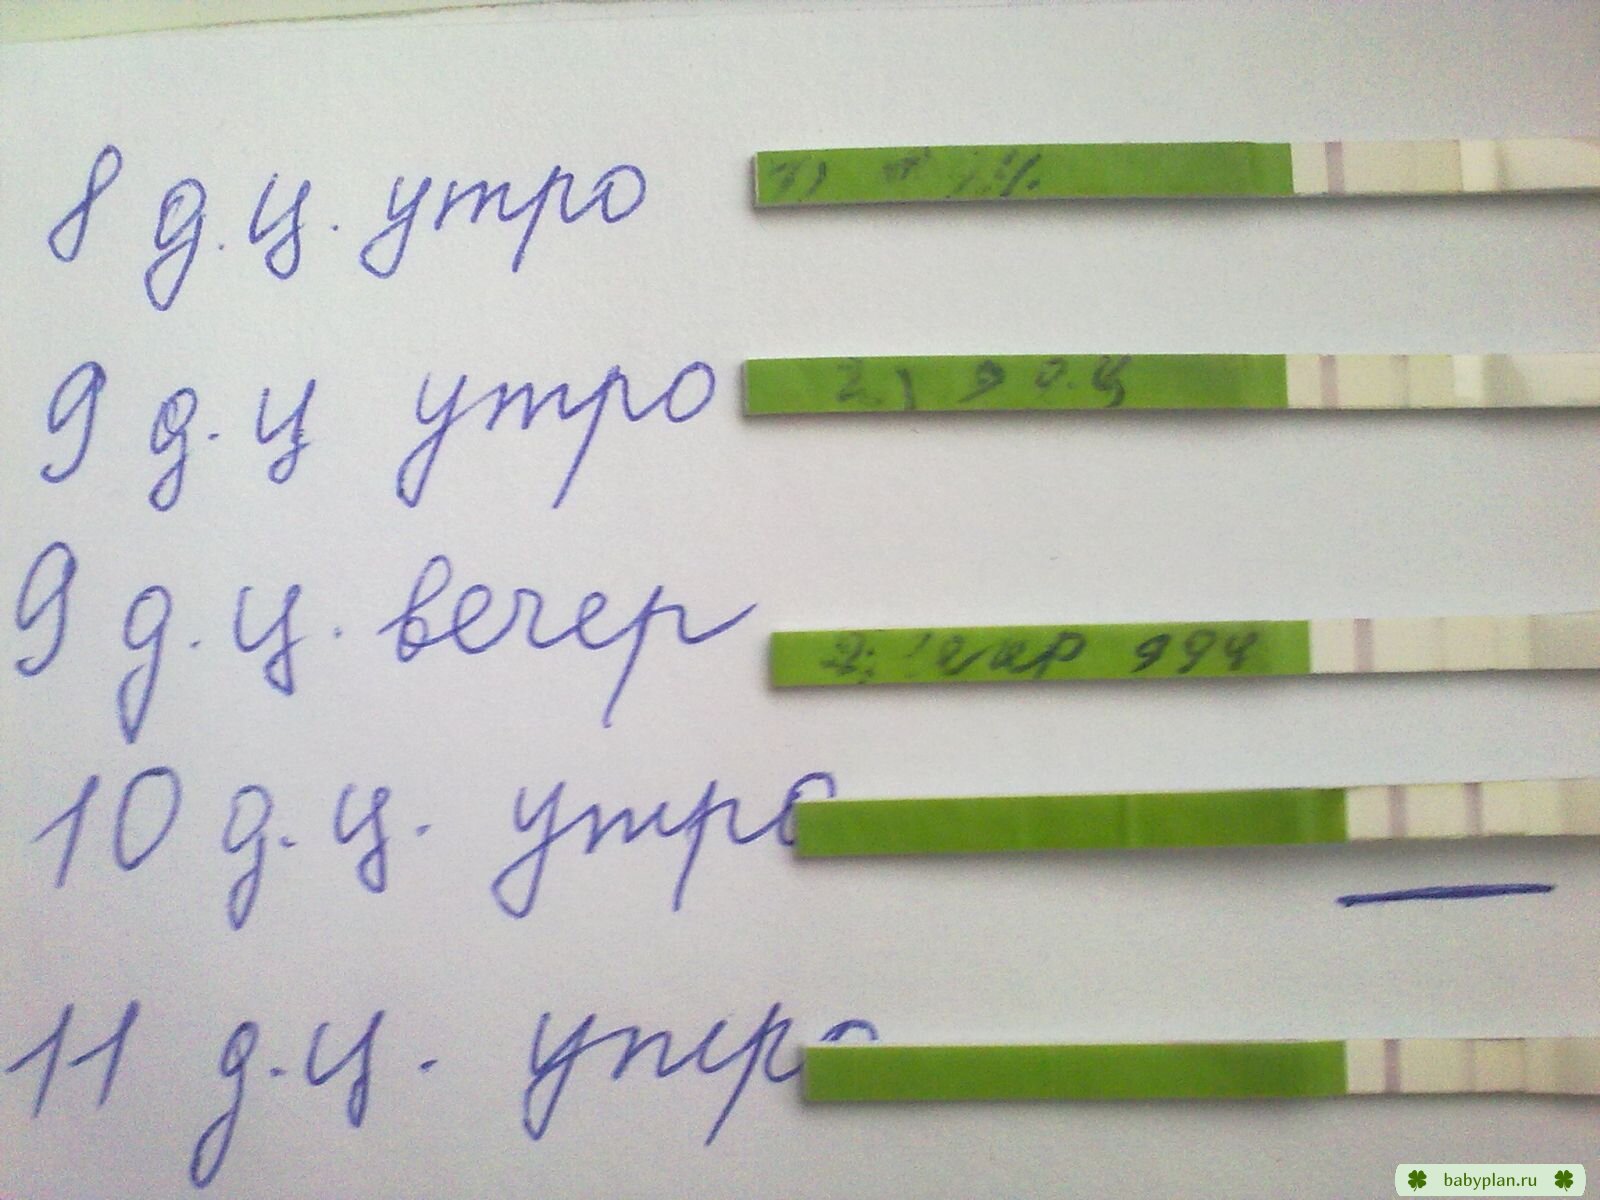 8 д.ц. утро
9 д.ц утро
2) 9 д.ц
9 д.ц. вечер
10 д.ц. утро
11 д.ц. утро
babyplan.ru